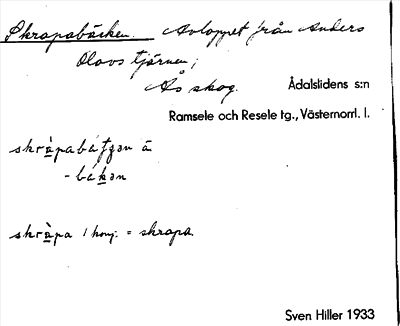 Skrapabäcken. Avloppet från Anders
Olovs tjärnen;
Ås skog. Ådalslidens s:n
Ramsele och Resele tg., Västernorrl. l.
skràpabátʃən ä
- bákən
skràpa 1 konj. = skrapa.
Sven Hiller 1933